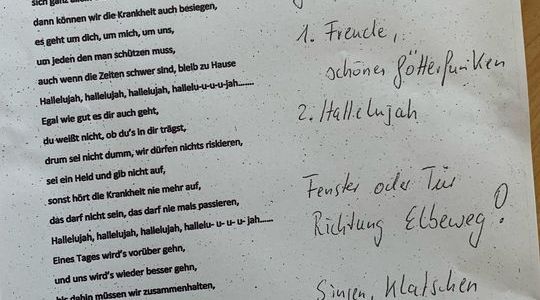 sich ganz
dann können wir die Krankheit auch besiegen,
es geht um dich, um mich, um uns,
um jeden den man schützen muss,
auch wenn die Zeiten schwer sind, bleib zu Hause
Hallelujah, hallelujah, hallelujah, hallelu-u-u-u-jah.......
Egal wie gut es dir auch geht,
du weißt nicht, ob du's in dir trägst,
drum sei nicht dumm, wir dürfen nichts riskieren,
sei ein Held und gib nicht auf,
sonst hört die Krankheit nie mehr auf,
das darf nicht sein, das darf nie mals passieren,
Hallelujah, hallelujah, hallelujah, hallelu- u- u- u- jah......
Eines Tages wird's vorüber gehn,
und uns wird's wieder besser gehn,
bis dahin müssen wir zusammenhalten,
1. Freude,
schöner Götterfunken
2. Hallelujah
Fenster oder Tür
Richtung Elbeweg!
Singen, Klatschen